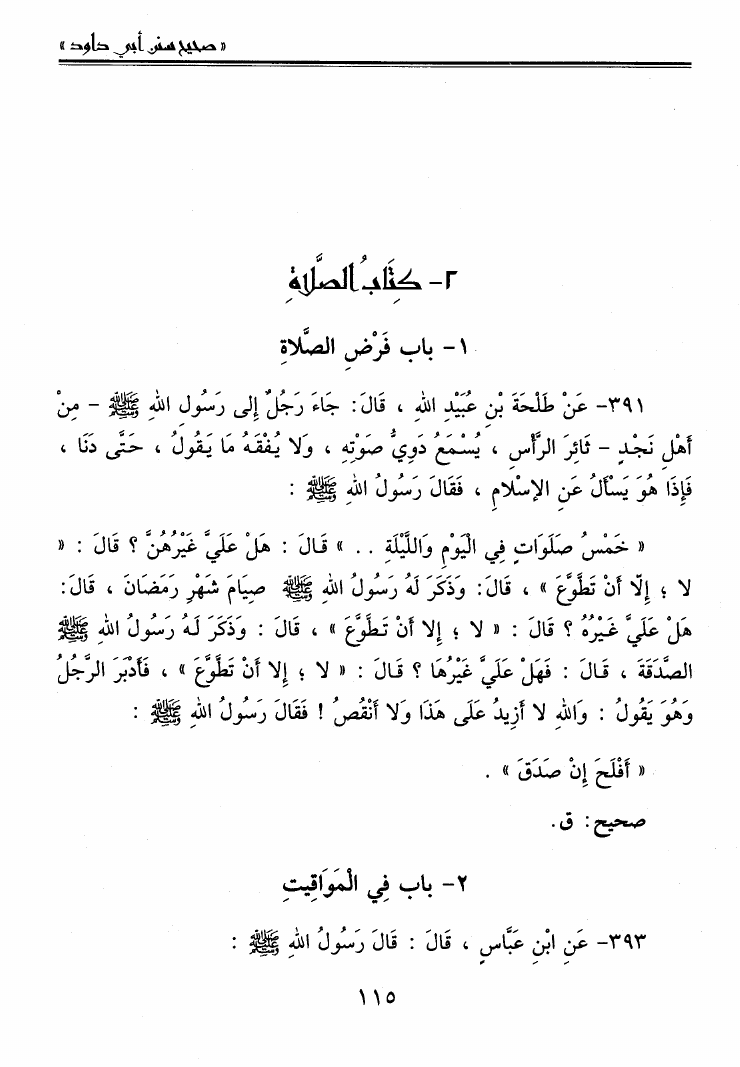 « صحيح سنن أبي داود »
٢- كِتَابُ الصَّلَاةِ
١- باب فَرْضِ الصَّلاةِ
٣٩١- عَنْ طَلْحَةَ بْنِ عُبَيْدِ اللهِ ، قَالَ: جَاءَ رَجُلٌ إِلى رَسُولِ اللهِ ﷺ – مِنْ
أَهْلِ نَجْدٍ – ثَائِرَ الرَّأْسِ ، يُسْمَعُ دَوِيُّ صَوْتِهِ ، وَلا يُفْقَهُ مَا يَقُولُ ، حَتَّى دَنَا ،
فَإِذَا هُوَ يَسْأَلُ عَنِ الإِسْلامِ ، فَقَالَ رَسُولُ اللهِ ﷺ :
« خَمْسُ صَلَوَاتٍ فِي الْيَوْمِ وَاللَّيْلَةِ . . » قَالَ : هَلْ عَلَيَّ غَيْرُهُنَّ ؟ قَالَ : «
لا ؛ إِلّا أَنْ تَطَّوَّعَ » ، قَالَ: وَذَكَرَ لَهُ رَسُولُ اللهِ ﷺ صِيَامَ شَهْرِ رَمَضَانَ ، قَالَ:
هَلْ عَلَيَّ غَيْرُهُ ؟ قَالَ : « لا ؛ إِلا أَنْ تَطَّوَّعَ » ، قَالَ : وَذَكَرَ لَهُ رَسُولُ اللهِ ﷺ
الصَّدَقَةَ ، قَالَ : فَهَلْ عَلَيَّ غَيْرُهَا ؟ قَالَ : « لا ؛ إِلا أَنْ تَطَّوَّعَ » ، فَأَدْبَرَ الرَّجُلُ
وَهُوَ يَقُولُ : وَاللهِ لا أَزِيدُ عَلَى هَذَا وَلا أَنْقُصُ ! فَقَالَ رَسُولُ اللهِ ﷺ :
« أَفْلَحَ إِنْ صَدَقَ » .
صحيح: ق.
٢- باب فِي الْمَوَاقِيتِ
٣٩٣- عَنِ ابْنِ عَبَّاسٍ ، قَالَ : قَالَ رَسُولُ اللهِ ﷺ :
١١٥